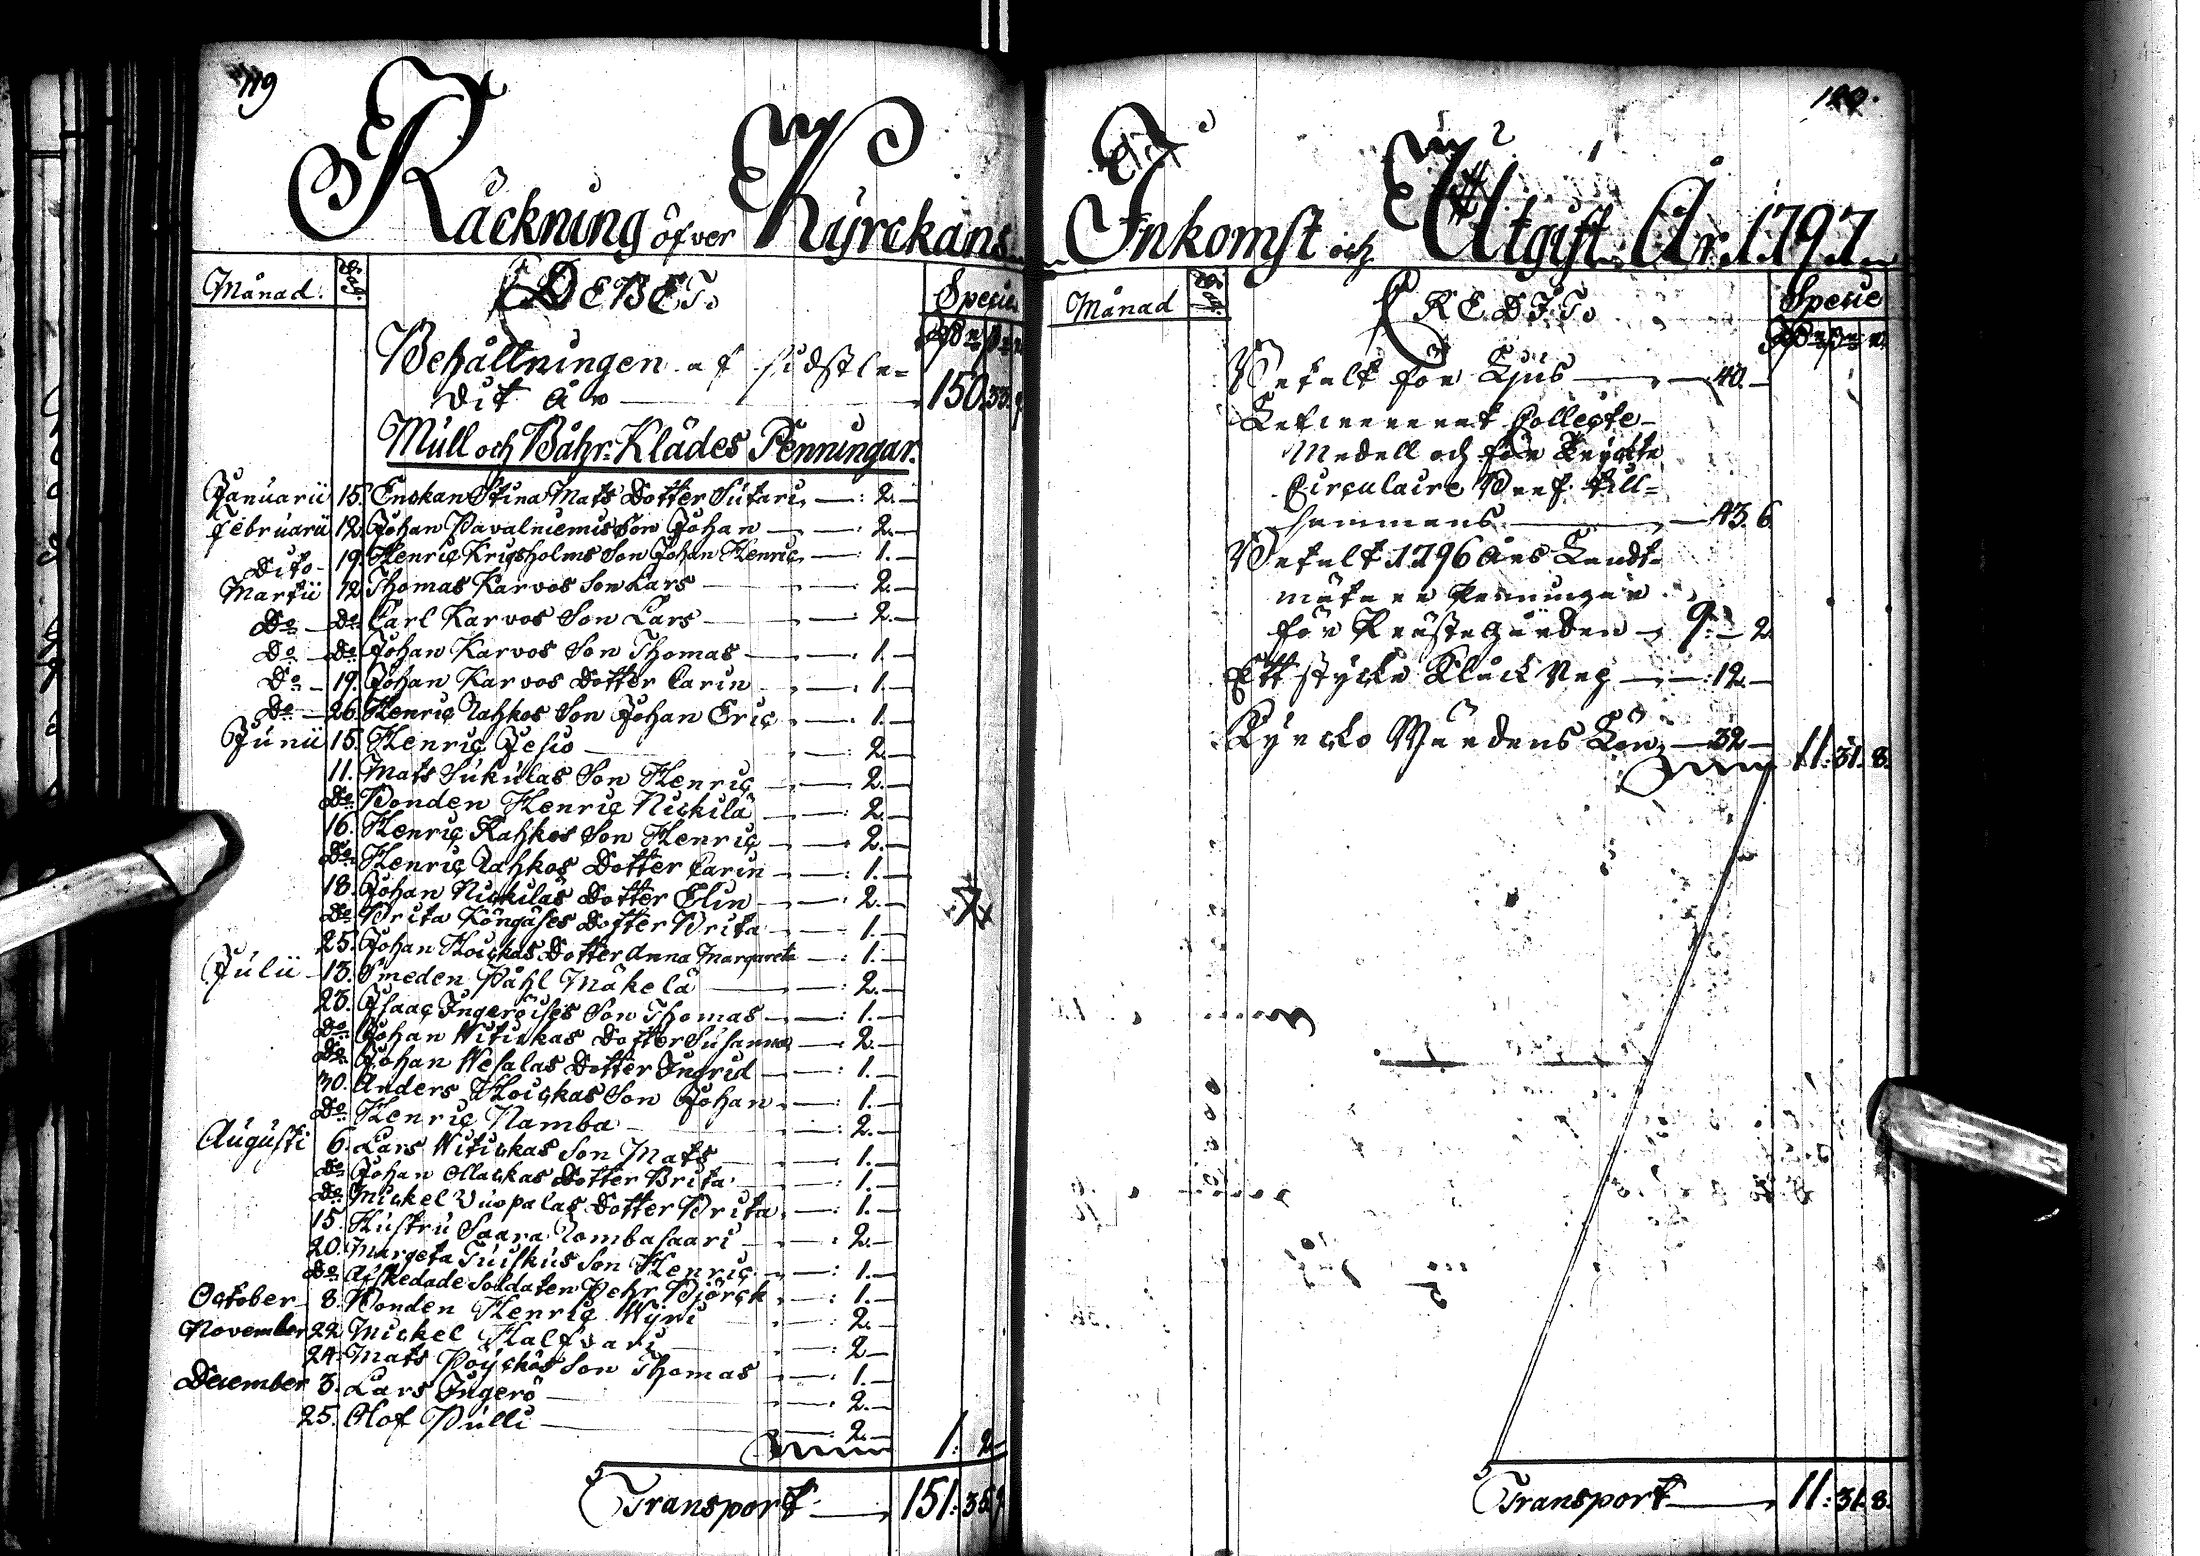 119
Räckning öfver Kyrckans
Månad. Dag. DEBET. Specie
Rd s r
Behållningen af sidstle-
dit år 150. 33. 9
Mull och Båhr-Klädes Penningar.
Januarii 15. Enckan Stina Mats Dotter Sutari 2.
Februarii 12. Johan Pavalniemis Son Johan 2.
Dito 19. Henric Krigsholms Son Johan Henric 1.
Martii 12. Thomas Karvos Son Lars 2.
Do Do Carl Karvos Son Lars 2.
Do Do Johan Karvos Son Thomas 1.
Do 19. Johan Karvos Dotter Carin 1.
Do 26. Henric Rahkos Son Johan Eric 1.
Junii 15. Henric Jesio 2.
11. Mats Sukulas Son Henric 2.
Do Bonden Henric Nickilä 2.
16. Henric Rahkos Son Henric 2.
Do Henric Rahkos Dotter Carin 1.
18. Johan Nickiläs Dotter Elin 2.
Do Brita Köngäses Dotter Brita 1.
25. Johan Hoickas Dotter Anna Margareta 1.
Julii 13. Smeden Påhl Mäkelä 2.
23. Isaac Ingeröises Son Thomas 1.
Do Johan Witickas Dotter Susanna 2.
Do Johan Wesalas Dotter Ingrid 1.
30. Anders Hoickas Son Johan 1.
Do Henric Namba 2.
Augusti 6. Lars Witickas Son Mats 1.
Do Johan Ollackas Dotter Brita 1.
Do Mickel Vuopalas Dotter Brita 1.
15. Hustru Saara Rombasaari 2.
20. Margeta Tuiskus Son Henric 1.
Do Afskedade Soldaten Pehr Björck 1.
October 8. Bonden Henric Wyri 2.
November 22. Mickel Halfvari 2
24. Mats Pöyckös Son Thomas 1.
December 3. Lars Ingerö 2.
25. Olof Pulli 2.
1: 2
Transport 151: 35. 9
Inkomst och Utgift År 1797.
Månad Dag. CREDIT. Specie
Rd s r
Betalt för Ljus 40.
Collecte-
Medell och för Tryckte
Circulaire Bref till-
hammans 43. 6
Betalt 1796 års Landt-
mätare Penningar
för Prästegården 9. 2
Ett stycke Klock Rep 12.
Kyrcko Wärdens Lön 32 11: 31. 8.
Transport 11: 31. 8.